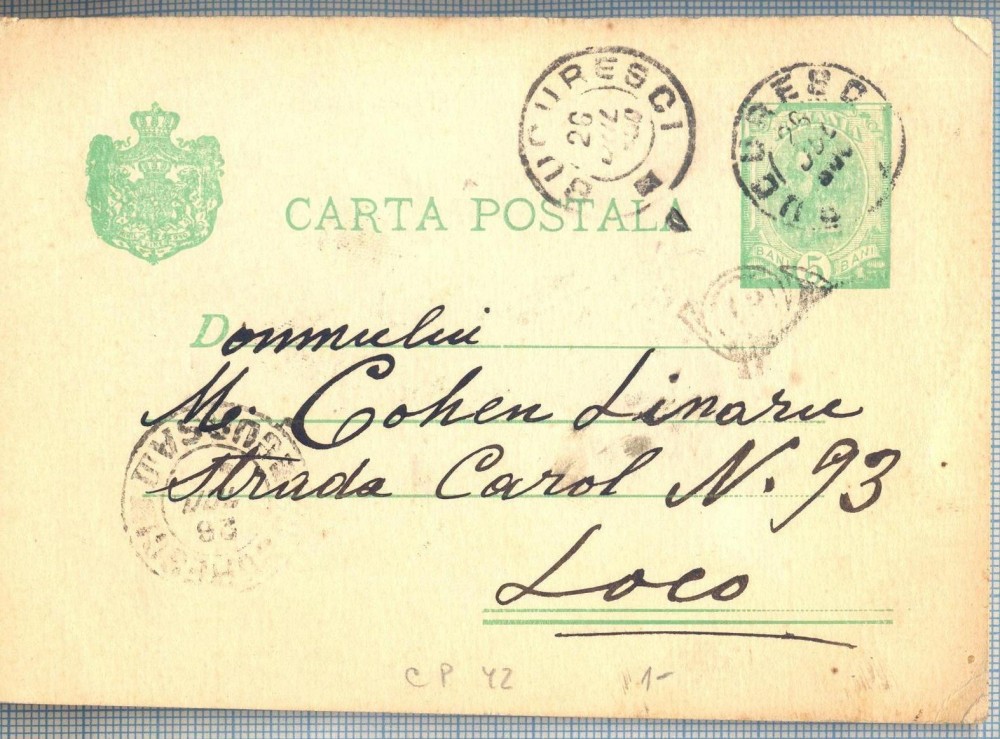 BUCURESCI
26
CARTA POSTALA
BANI 5 BANI
Domnului
M. Cohen Linaru
Strada Carol N. 93
Loco
26
CP 42
1-